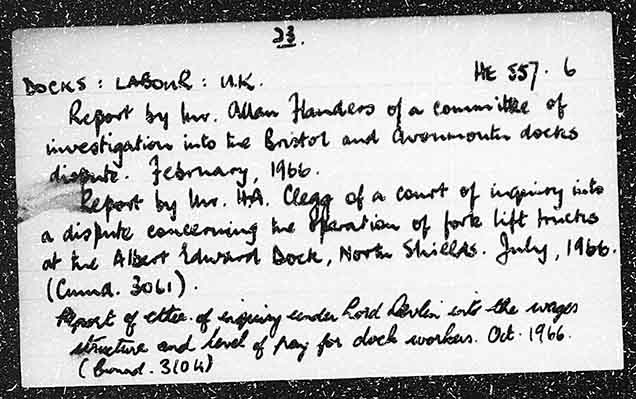 23.
DOCKS : LABOUR : U.K.
HE 557. 6
Report by Mr. Allan Flanders of a committee of
investigation into the Bristol and Avonmouth docks
dispute. February, 1966.
Report by Mr. H.A. Clegg of a court of inquiry into
a dispute concerning the operation of fork lift trucks
at the Albert Edward Dock, North Shields. July, 1966.
(Cmnd. 3061).
Report of cttee. of enquiry under Lord Devlin into the wages
structure and level of pay for dock workers. Oct. 1966.
(Cmnd. 3104)